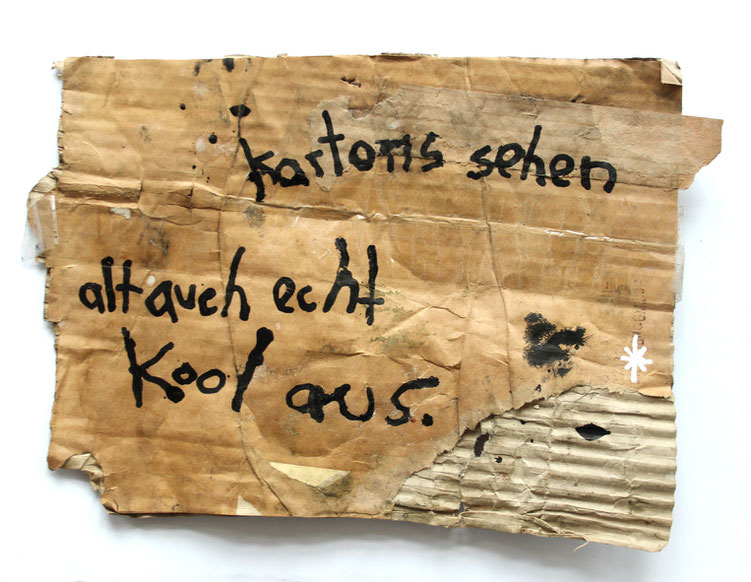 kartons sehen
alt auch echt
Kool aus.